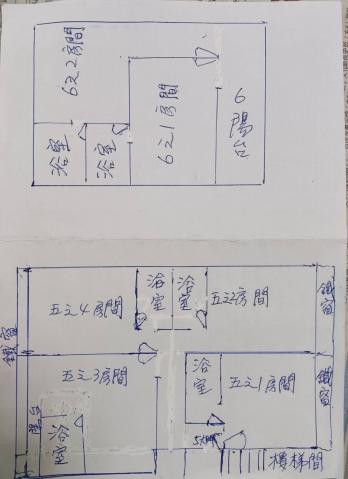 6之2房間
浴室
浴室
6之1房間
6陽台
浴室
浴室
五之4房間
五之2房間
鐵窗
鐵窗
五之3房間
浴室
五之1房間
鐵窗
陽台
浴室
樓梯間